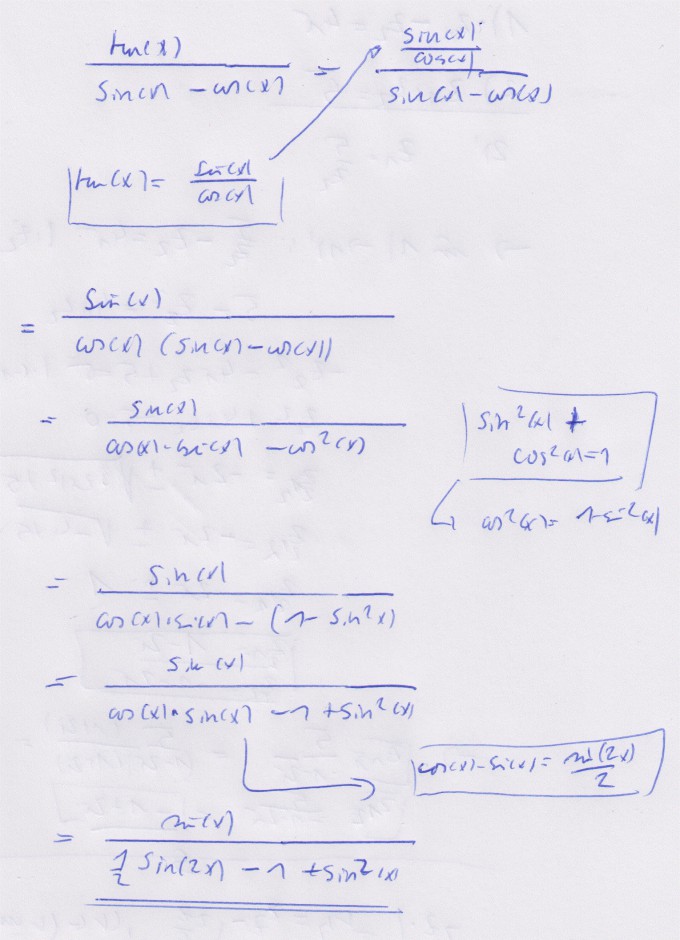 tan(x) / (sin(x) - cos(x)) = (sin(x) / cos(x)) / (sin(x) - cos(x))
tan(x) = sin(x) / cos(x)
= sin(x) / (cos(x) (sin(x) - cos(x)))
= sin(x) / (cos(x) · sin(x) - cos²(x))
sin²(x) +
cos²(x) = 1
cos²(x) = 1 - sin²(x)
= sin(x) / (cos(x) · sin(x) - (1 - sin²x))
= sin(x) / (cos(x) · sin(x) - 1 + sin²(x))
cos(x) · sin(x) = sin(2x) / 2
= sin(x) / (1/2 sin(2x) - 1 + sin²(x))